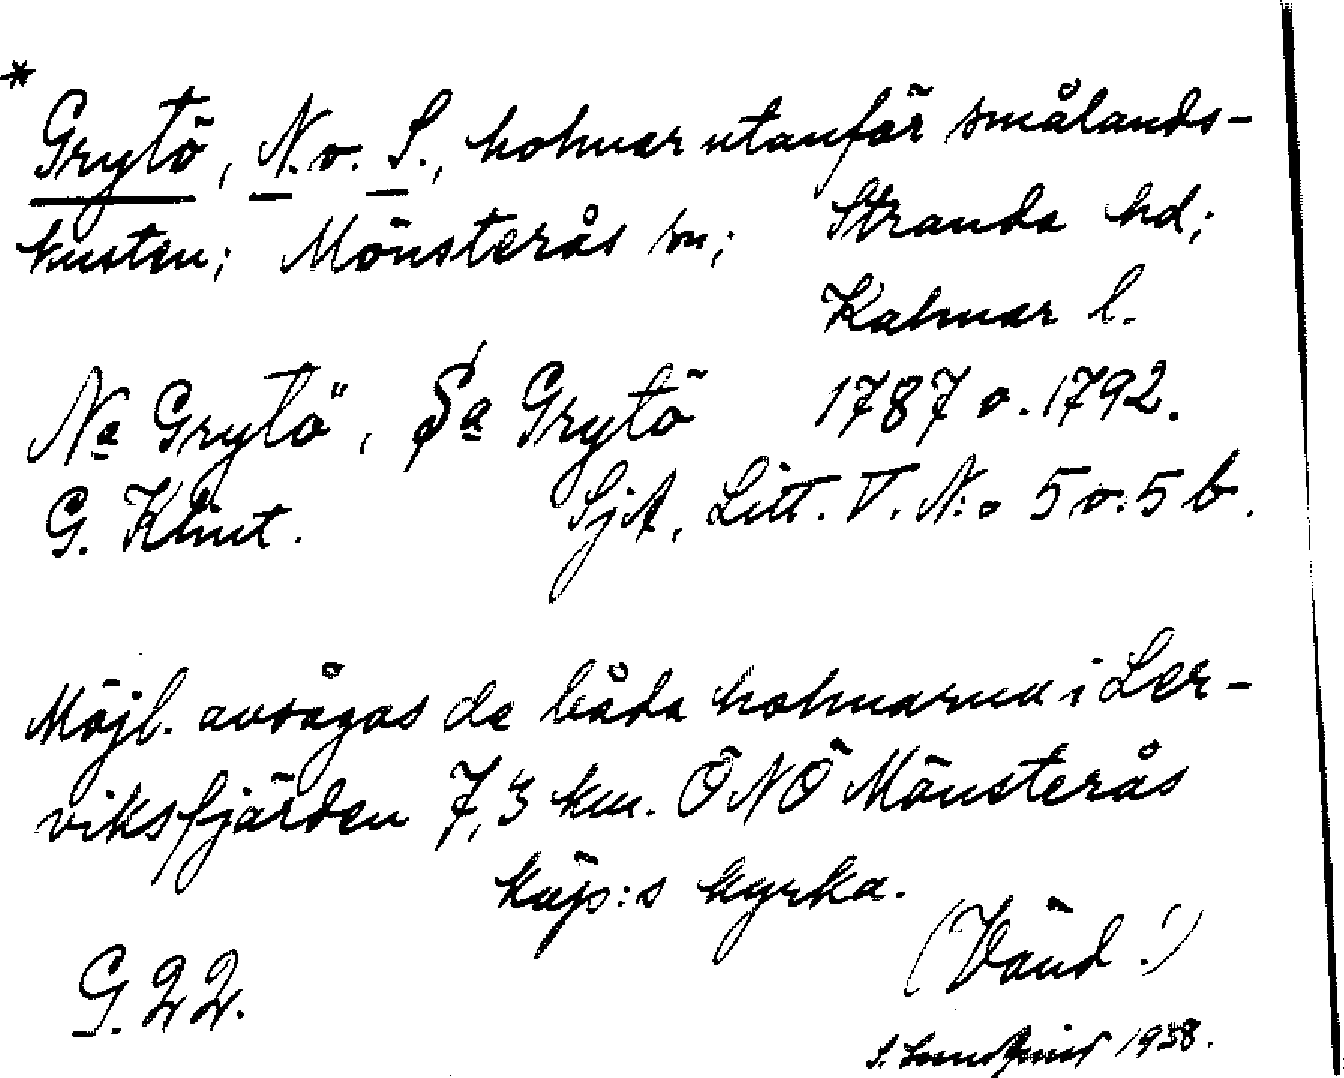 *
Grytö, N. o. S., holmar utanför smålands-
kusten; Mönsterås sn; Stranda hd;
Kalmar l.
Na Grytö, Sa Grytö 1787 o. 1792.
G. Klint. SjA, Litt. V. N:o 5 o. 5 b.
Möjl. avsågas de båda holmarna i Ler-
viksfjärden 7,3 km. ÖNÖ Mönsterås
köp:s kyrka.
(Vänd!)
G. 22.
S. 1938.